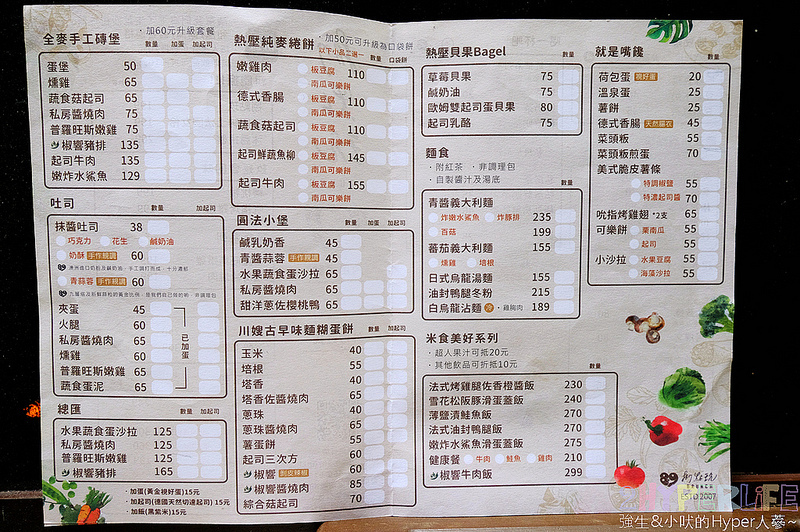 全麥手工磚堡
· 加60元升級套餐
數量 加蛋 加起司
蛋堡 50
燻雞 65
蔬食菇起司 65
私房醬燒肉 75
普羅旺斯嫩雞 75
椒響豬排 135
起司牛肉 135
嫩炸水鯊魚 129
吐司
數量 加起司
抹醬吐司 38
巧克力 花生 鹹奶油
奶酥 手作親調 60
青蒜蓉 手作親調 60
夾蛋 45
火腿 60
私房醬燒肉 65
燻雞 60
普羅旺斯嫩雞 65
蔬食蛋泥 65
已加蛋
總匯
數量 加起司
水果蔬食蛋沙拉 125
私房醬燒肉 125
普羅旺斯嫩雞 125
椒響豬排 165
· 加蛋(黃金視好蛋)15元
· 加起司(德國天然切達起司)15元
· 加飯(黑紫米)15元
熱壓純麥捲餅
· 加50元可升級為口袋餅
以下小品二選一
數量 口袋餅
嫩雞肉 板豆腐 110
南瓜可樂餅
德式香腸 板豆腐 110
南瓜可樂餅
蔬食菇起司 板豆腐 110
南瓜可樂餅
起司鮮蔬魚柳 板豆腐 145
南瓜可樂餅
起司牛肉 板豆腐 155
南瓜可樂餅
圓法小堡
數量 加蛋 加起司
鹹乳奶香 45
青醬蒜蓉 手作親調 45
水果蔬食蛋沙拉 65
私房醬燒肉 65
甜洋蔥佐櫻桃鴨 65
川嫂古早味麵糊蛋餅
數量 加起司
玉米 40
培根 55
塔香 40
塔香佐醬燒肉 65
蔥珠 40
蔥珠醬燒肉 65
薯蛋餅 55
起司三次方 60
椒響 剝皮辣椒 60
椒響醬燒肉 85
綜合菇起司 70
熱壓貝果Bagel
數量
草莓貝果 75
鹹奶油 75
歐姆雙起司蛋貝果 80
起司乳酪 75
麵食
· 附紅茶 · 非調理包
· 自製醬汁及湯底
數量
青醬義大利麵
炸嫩水鯊魚 炸豚排 235
百菇 199
蕃茄義大利麵 155
燻雞 培根
日式烏龍湯麵 155
油封鴨腿冬粉 215
白烏龍沾麵 冷 · 雞胸肉 189
米食美好系列
· 超人果汁可抵20元
· 其他飲品可折抵10元
數量
法式烤雞腿佐香橙醬飯 230
雪花松阪豚滑蛋蓋飯 240
薄鹽漬鮭魚飯 270
法式油封鴨腿飯 270
嫩炸水鯊魚滑蛋蓋飯 275
健康餐 牛肉 鮭魚 雞肉 210
椒響牛肉飯 299
就是嘴饞
數量
荷包蛋 視好蛋 20
溫泉蛋 25
薯餅 25
德式香腸 天然腸衣 45
菜頭粄 55
菜頭粄煎蛋 70
美式脆皮薯條
特調椒鹽 55
特濃起司醬 70
吮指烤雞翅 *2支 65
可樂餅 栗南瓜 55
起司 55
小沙拉 水果豆腐 55
海藻沙拉 55
ESTD 2007
HYPERLIFE
強生&小吠的Hyper人蔘~